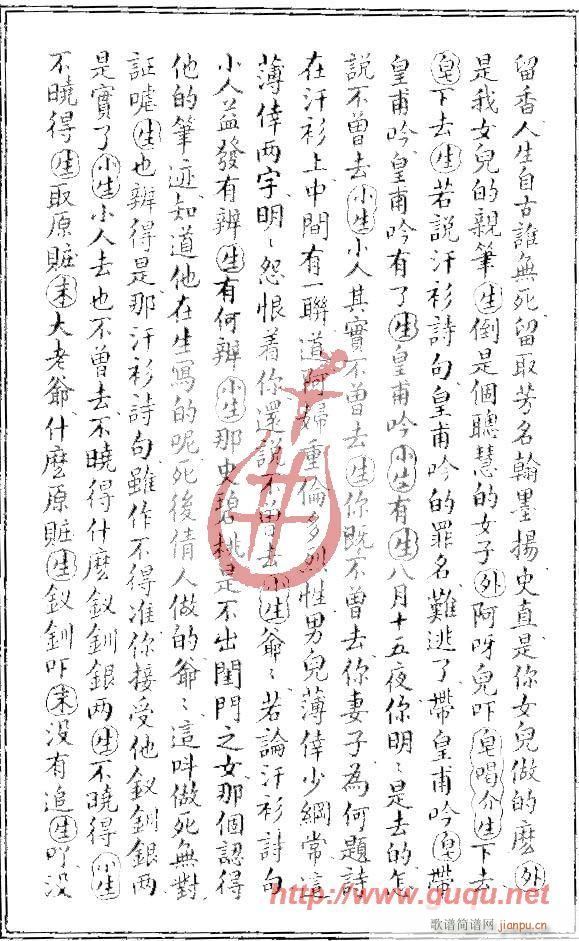 留香人生自古誰無死留取芳名翰墨揚史直是你女兒做的麽外
是我女兒的親筆生倒是個聰慧的女子外阿呀兒吓皂唱介生下去
皂下去生若說汗衫詩句皇甫吟的罪名難逃了帶皇甫吟皂帶
皇甫吟皇甫吟有了生皇甫吟小生有生八月十五夜你明〻是去的怎
說不曾去小生小人其實不曾去生你既不曾去你妻子為何題詩
在汗衫上中間有一聯道阿婦重倫多烈性男兒薄倖少綱常這
薄倖两字明〻怨恨着你還說不曾去小生爺〻若論汗衫詩句
小人益發有辨生有何辨小生那史碧桃是不出閨門之女那個認得
他的筆迹知道他在生寫的呢死後倩人做的爺〻這呌做死無對
証嘘生也辨得是那汗衫詩句雖作不得准你接受他釵釧銀两
是實了小生小人去也不曾去不曉得什麽釵釧銀两生不曉得小生
不曉得生取原賍末大老爺什麽原賍生釵釧吓末没有追生吖没
http://www.guqu.net
歌谱简谱网
jianpu.cn